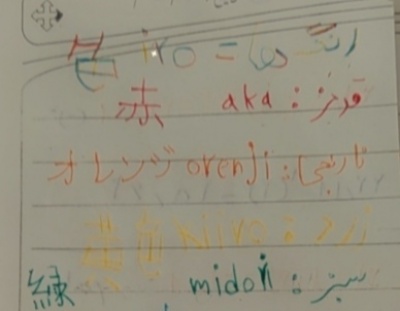 色 iro = رنگ ها
赤 aka : قرمز
オレンジ orenji : نارنجی
黄色 kiiro : زرد
緑 midori : سبز